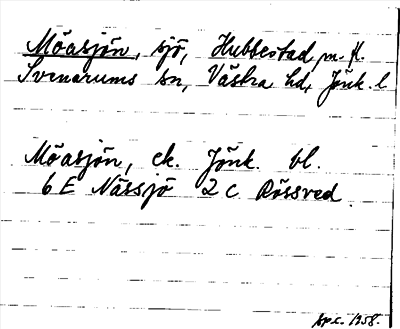 Möasjön, sjö, Hubbestad m. fl.
Svenarums sn, Västra hd, Jönk. l
Möasjön, ek. Jönk. bl.
6 E Nässjö 2 c Rössved.
1958.